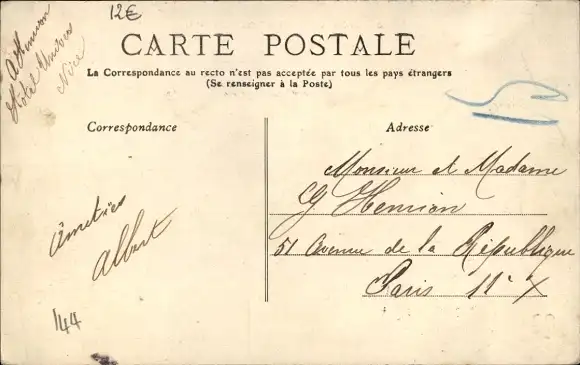 12€
A Henrion
Hôtel
Nice
CARTE POSTALE
La Correspondance au recto n'est pas acceptée par tous les pays étrangers
(Se renseigner à la Poste)
Correspondance
Adresse
Monsieur et Madame
Henrion
51 Avenue de la République
Paris 11e X
Amitiés
Albert
144